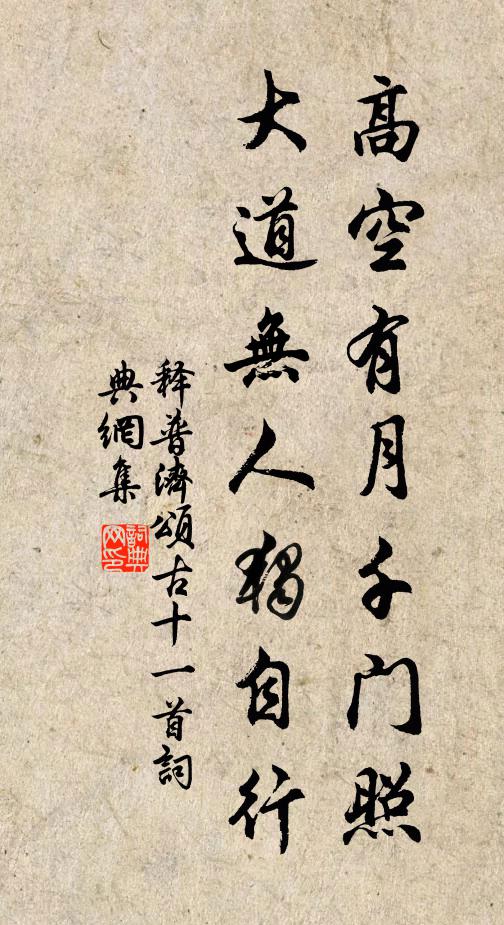 高空有月千门照
大道無人獨自行
释普濟頌古十一首詞
典網集
詞典
网印